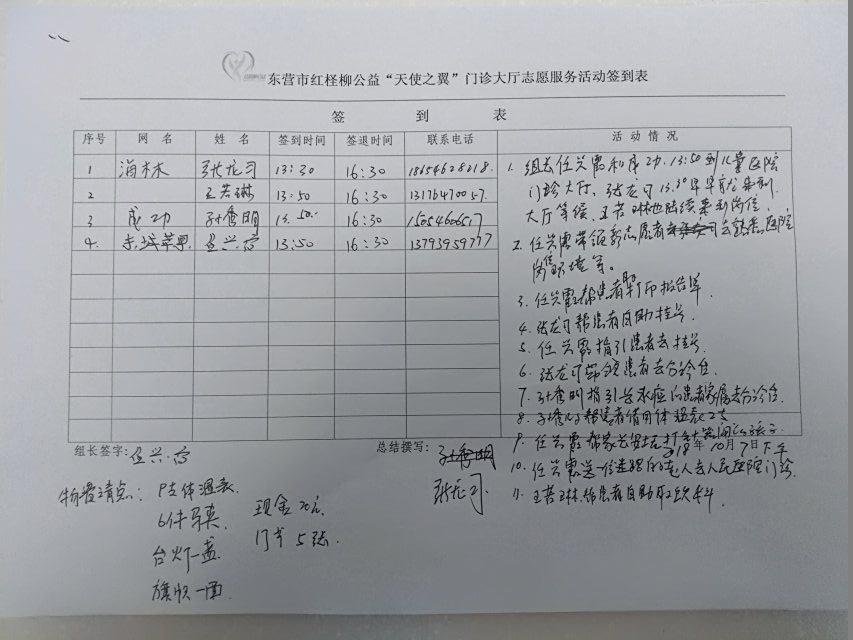 东营市红柽柳公益“天使之翼”门诊大厅志愿服务活动签到表
签 到 表
序号 网 名 姓 名 签到时间 签退时间 联系电话 活 动 情 况
1 海林 张龙习 13:30 16:30 18654628218
2 王若琳 13:50 16:30 13176470057
3 成功 孙秀明 13:50 16:30 1505460651
4. 赤城苹果 任兴霞 13:50 16:30 13793959777
1. 组长任兴霞和成功, 13:50到儿童医院
门诊大厅, 张龙习13:30早早就来到
大厅等候, 王若琳也陆续来到岗位.
2. 任兴霞带领新志愿者去熟悉医院
岗位环境等。
3. 任兴霞帮患者打印报告单.
4. 张龙习帮患者自助挂号.
5. 任兴霞指引患者去挂号.
6. 张龙习带领患者去分诊台.
7. 孙秀明指引患者家属去分诊台.
8. 孙秀明帮患者借用体温表2支
9. 任兴霞帮家长
10. 任兴霞送一位老人去人民医院门诊.
11. 王若琳帮患者自助取
组长签字: 任兴霞
总结撰写:
张龙习
18年10月7日下午
物资清点: 体温表
6件马夹 现金20元
台灯一盏 门卡5张
旗帜一面